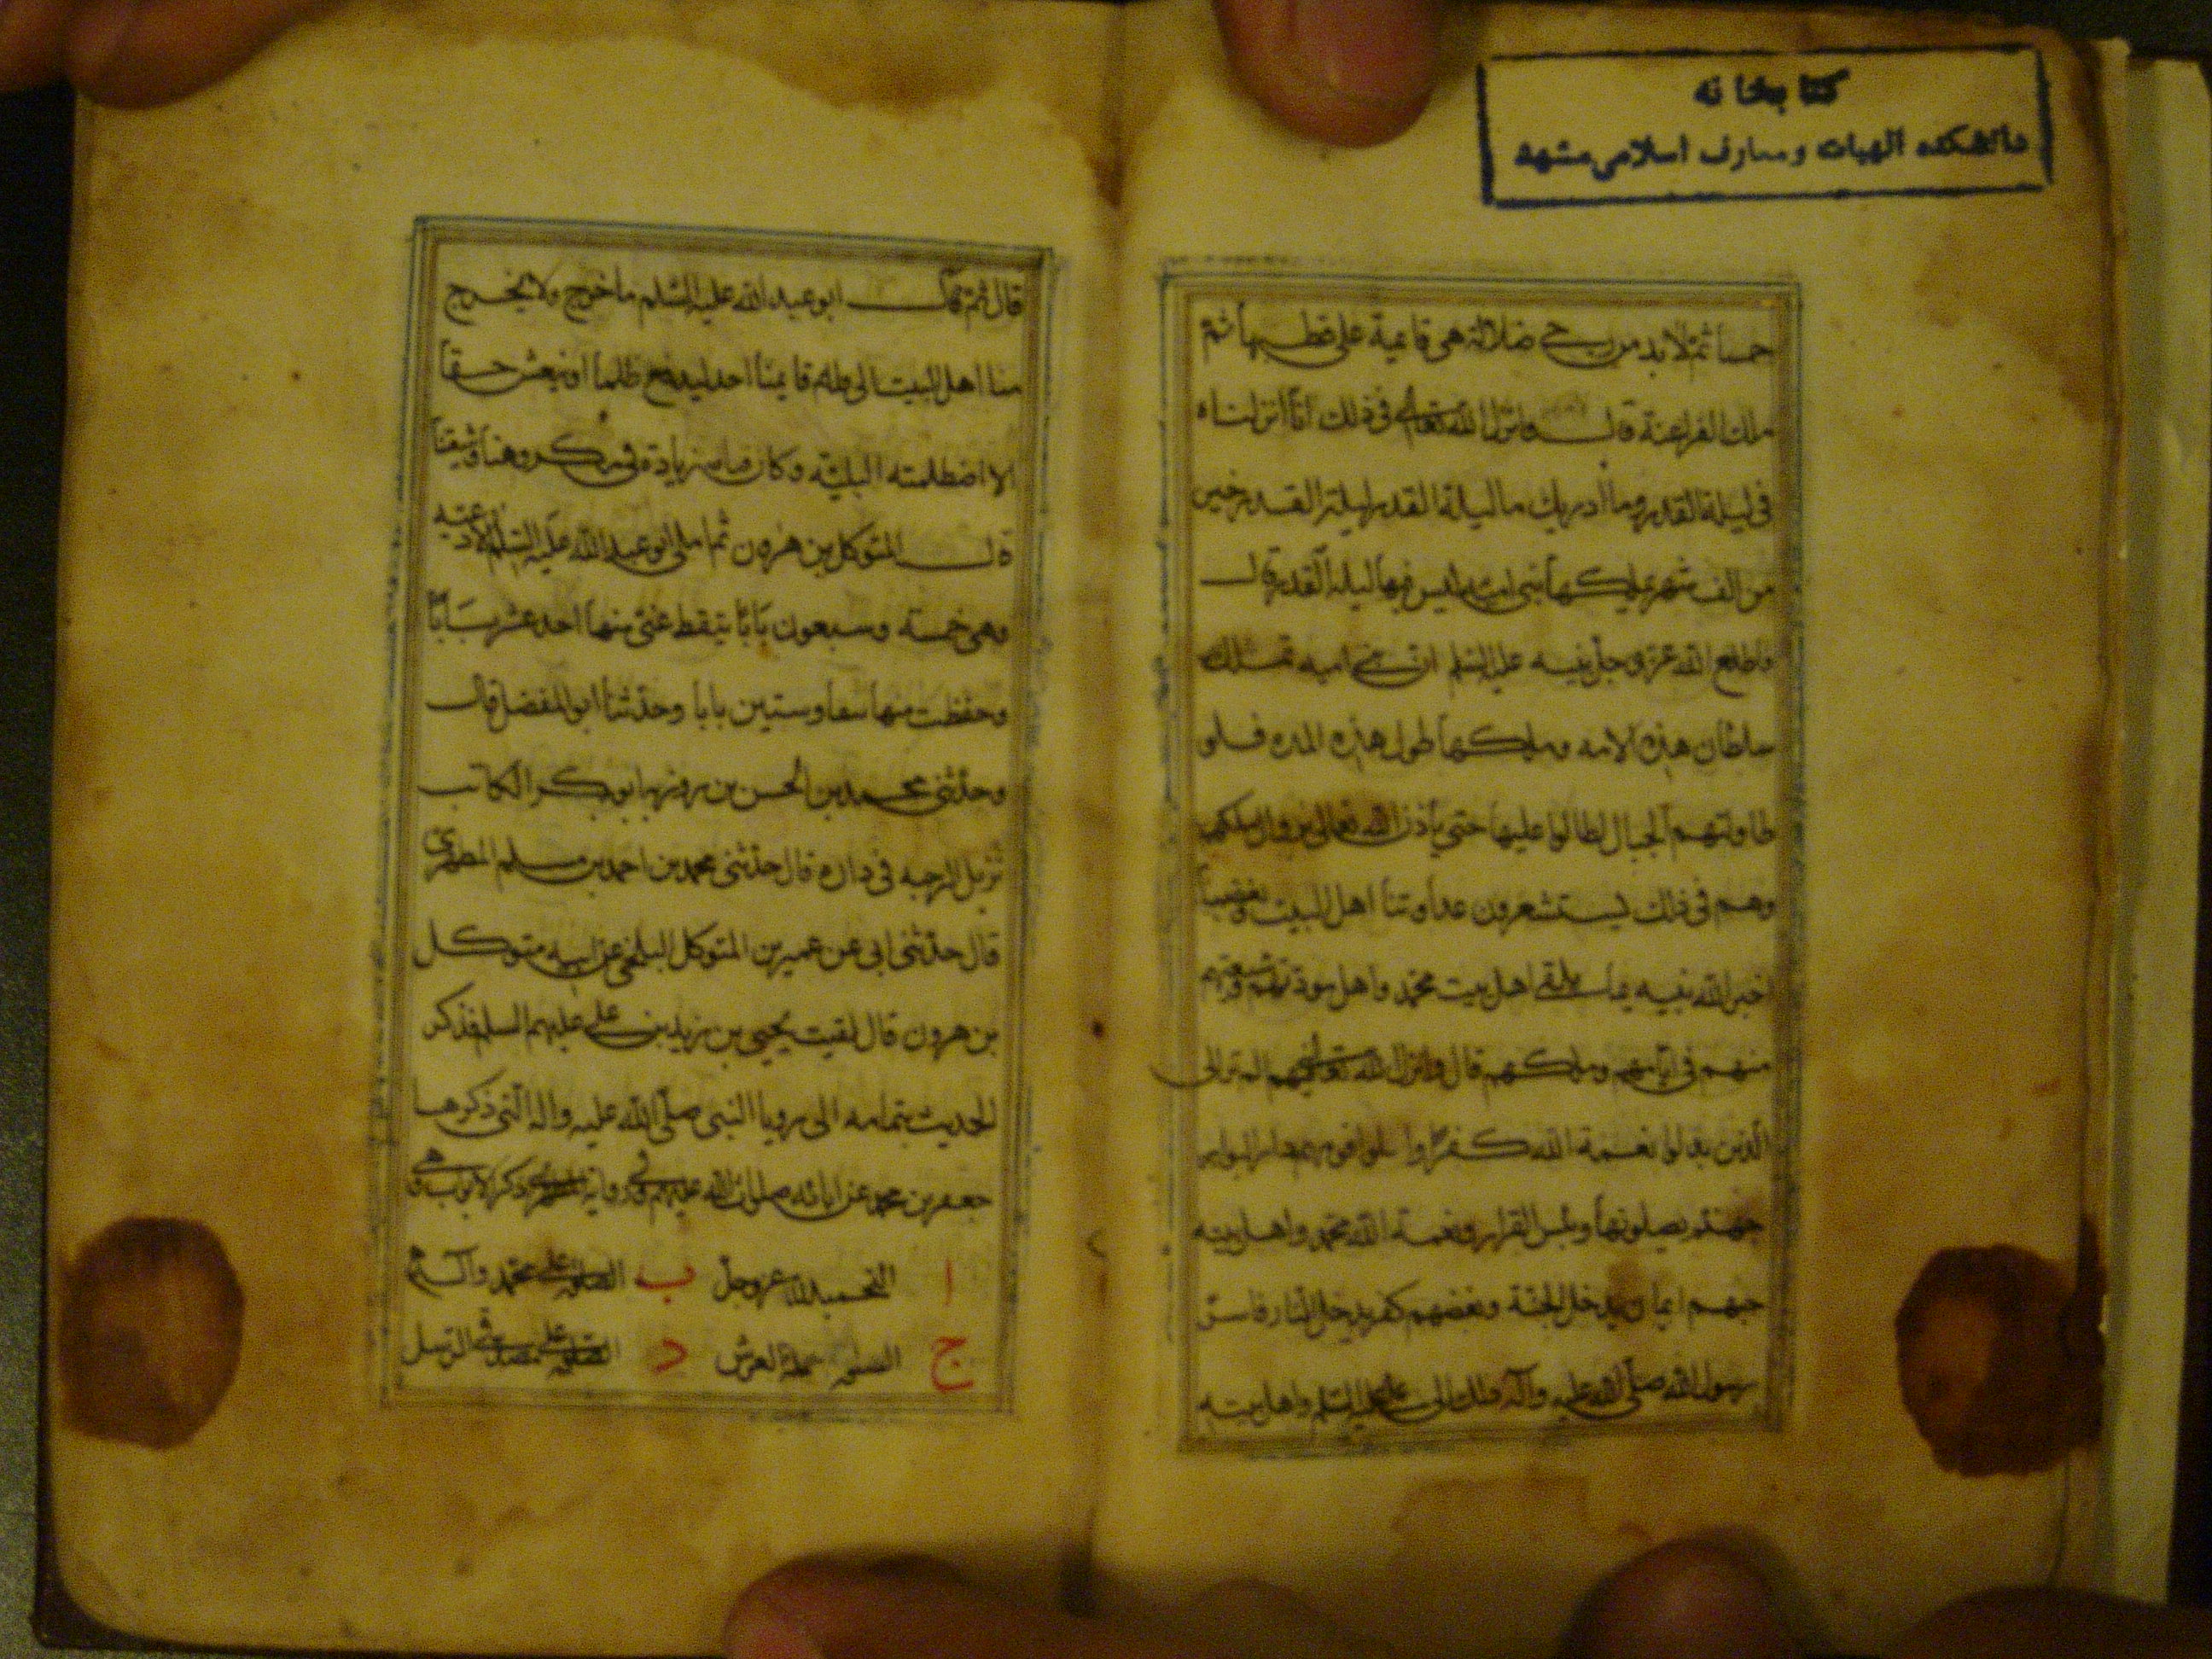 كتابخانه
دانشكده الهيات ومعارف اسلامى مشهد
خمسا ثم لا بد من رحى ضلالة هى قايمة على قطبها ثم
ملك الفراعنة قال وانزل الله تعالى فى ذلك انا انزلناه
فى ليلة القدر وما ادريك ما ليلة القدر ليلة القدر خير
من الف شهر يملكها بنى اميه ليس فيها ليلة القدر قال
فاطلع الله عز وجل نبيه عليه السلم ان بنى اميه تملك
سلطان هذه الامه وملكها طول هذه المده فلو
طاولتهم الجبال لطالوا عليها حتى يأذن الله تعالى بزوال ملكهم
وهم فى ذلك يستشعرون عداوتنا اهل البيت وبغضنا
اخبر الله نبيه بما يلقى اهل بيت محمد واهل مودتهم وشيعتهم
منهم فى ايامهم وملكهم قال وانزل الله تعالى فيهم الم تر الى
الذين بدلوا نعمة الله كفرا واحلوا قومهم دار البوار
جهنم يصلونها وبئس القرار ونعمة الله محمد واهل بيته
حبهم ايمان يدخل الجنة وبغضهم كفر يدخل النار فاسر
رسول الله صلى الله عليه وآله ذلك الى على عليه السلم واهل بيته
قال ثم قال ابو عبد الله عليه السلم ما خرج ولا يخرج
منا اهل البيت الى قايمنا احد ليدفع ظلما او ينعش حقا
الا اضطلمته البلية وكان زيادة فى
قال المتوكل بن هرون ثم املى ابو عبد الله عليه السلم الادعيه
وهى خمسة وسبعون بابا عنى منها احد عشر بابا
وحفظت منها وستين بابا وحدثنا ابو المفضل قال
وحدثنى محمد بن الحسن بن روزبه ابو بكر الكاتب
نزيل الرحبه فى داره قال حدثنى محمد بن احمد بن مسلم المطهرى
قال حدثنى ابى عن عمير بن المتوكل البلخى عن ابيه متوكل
بن هرون قال لقيت يحيى بن زيد بن على عليهم السلم فذكر
الحديث بتمامه الى رويا النبى صلى الله عليه واله التى ذكرها
جعفر بن محمد عن ابائه صلوات الله عليهم وفى رواية المطهرى ذكر الابواب وهى
ا التحميد لله عز وجل ب الصلوة على محمد وآله
ج الصلوة حملة العرش د الصلوة على مصدقى الرسل